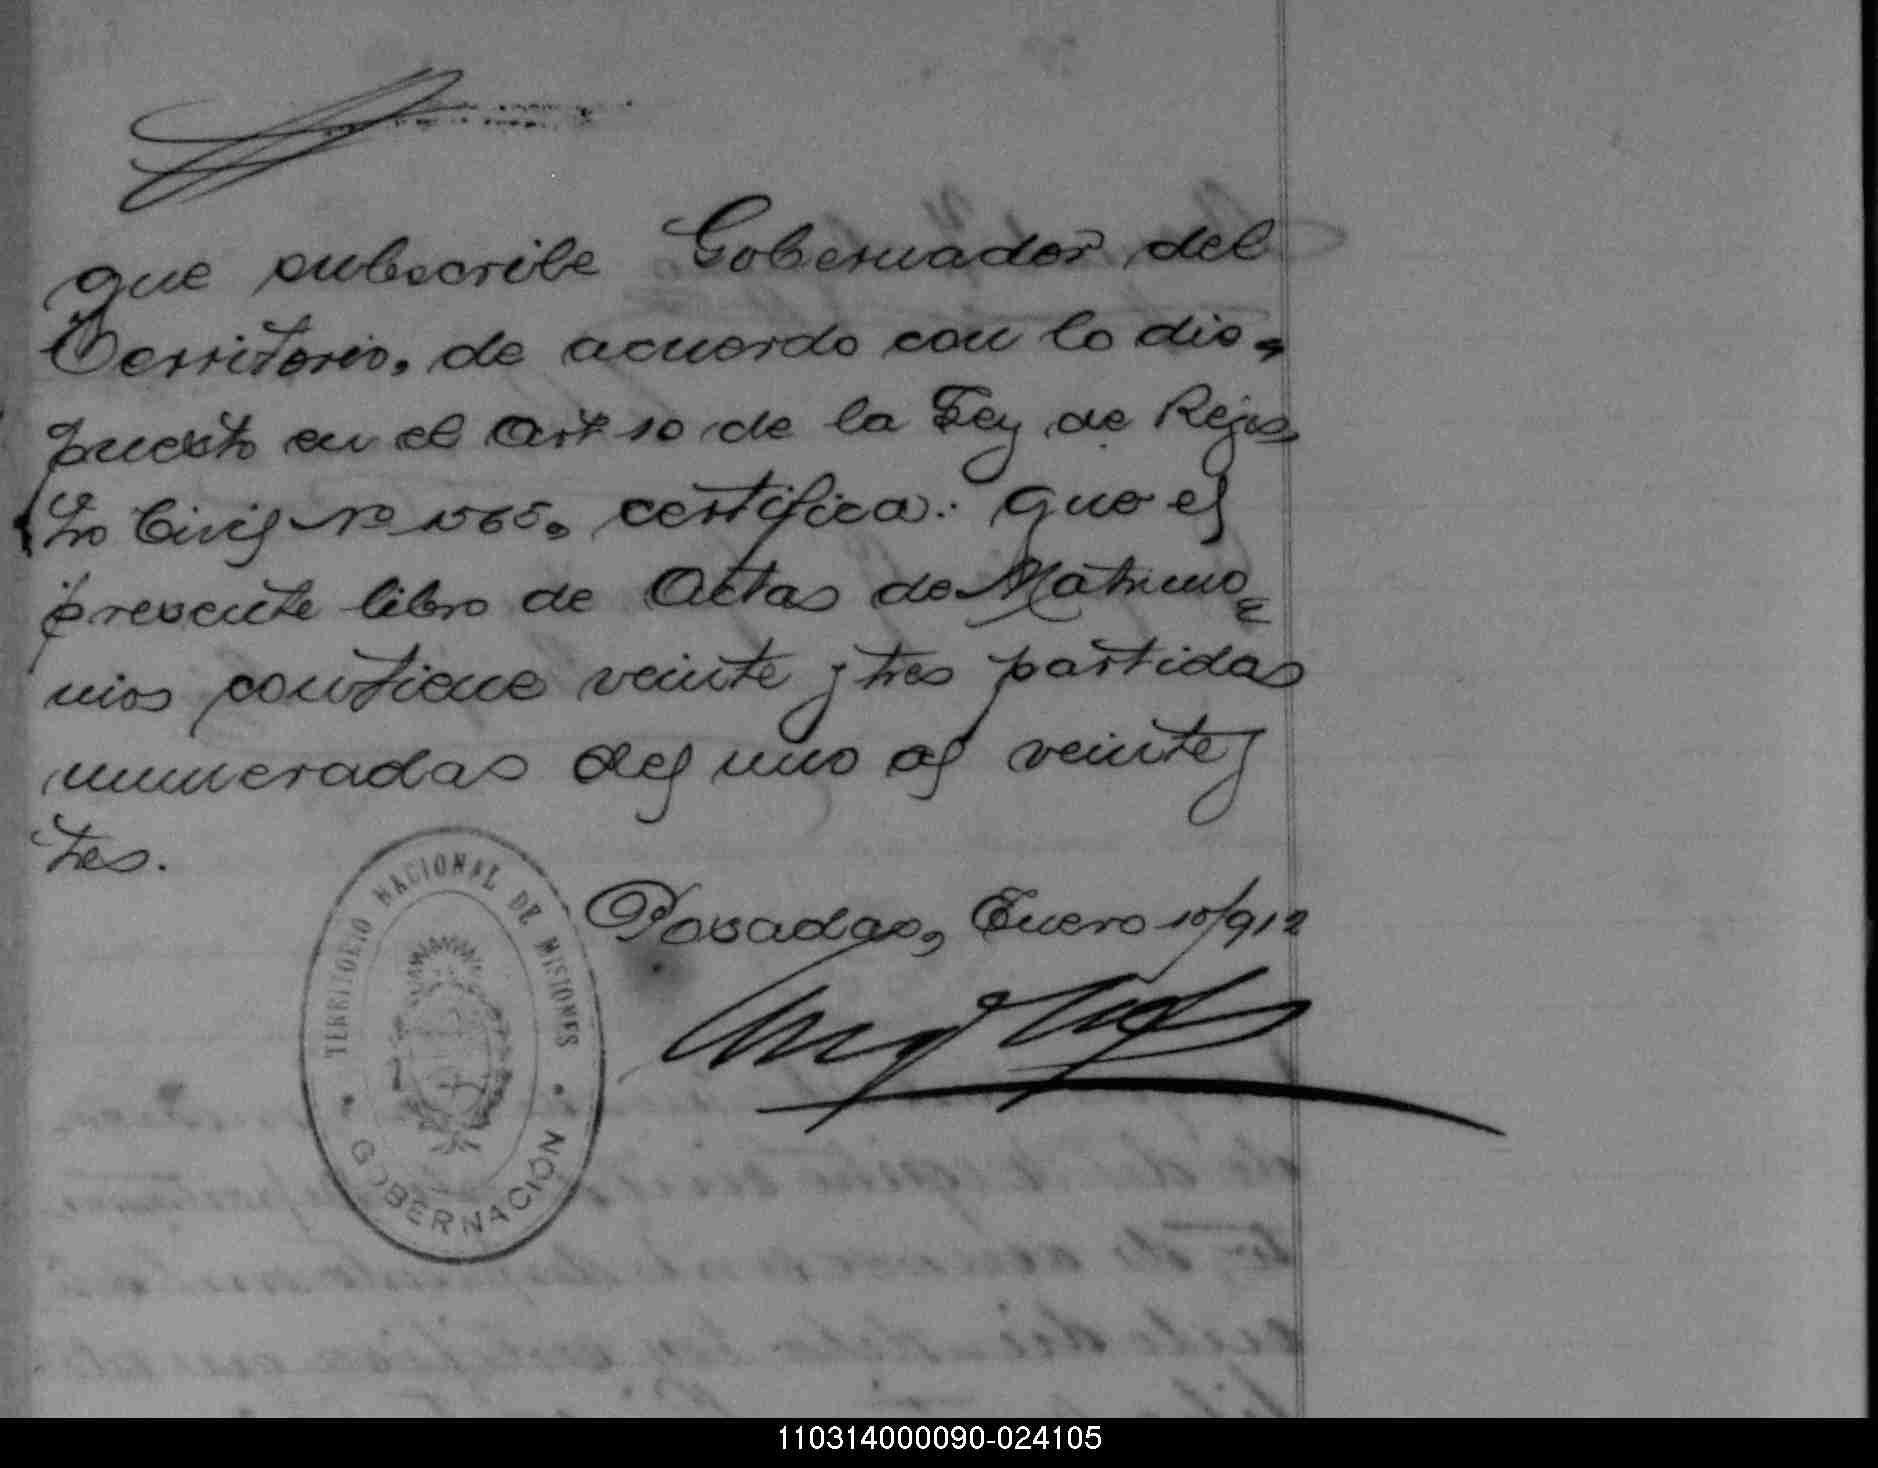 que subscribe Gobernador del
Territorio, de acuerdo con lo dis,
puesto en el Art 10 de la Ley de Rejis,
tro Civil Nº 1565, certifica: que el
presente libro de Actas de Matrimo=
nios contiene veinte y tres partidas
numeradas del uno al veinte y
tres.
Posadas, Enero 10/912
TERRITORIO NACIONAL DE MISIONES
GOBERNACIÓN
110314000090-024105